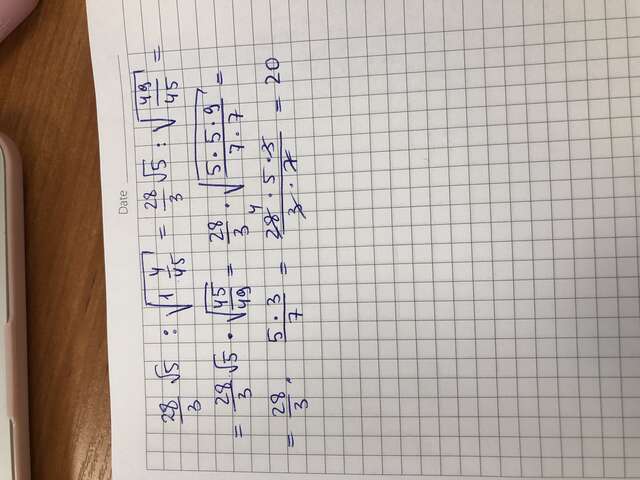 Date
28/3 √5 : √(1 4/45) = 28/3 √5 : √(49/45) =
= 28/3 √5 · √(45/49) = 28/3 · √((5 · 5 · 9)/(7 · 7)) =
= 28/3 · (5 · 3)/7 = (28 4 · 5 · 3)/(3 · 7) = 20